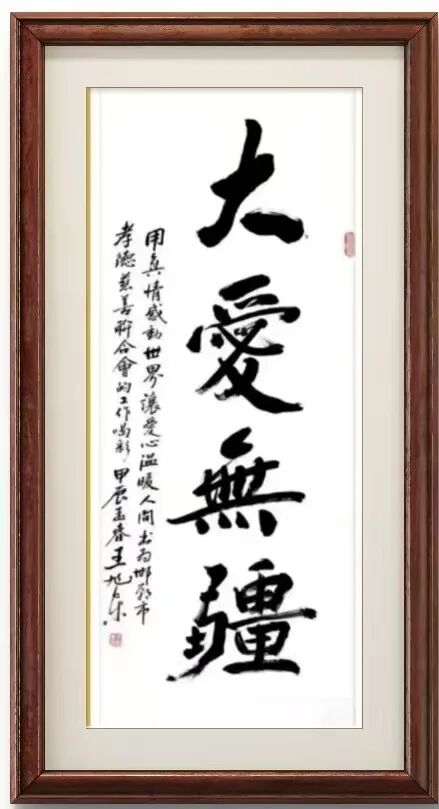 大愛無疆
用真情感動世界讓愛心溫暖人間書為邯鄲市
孝德慈善聯合會的工作喝彩甲辰孟春王旭